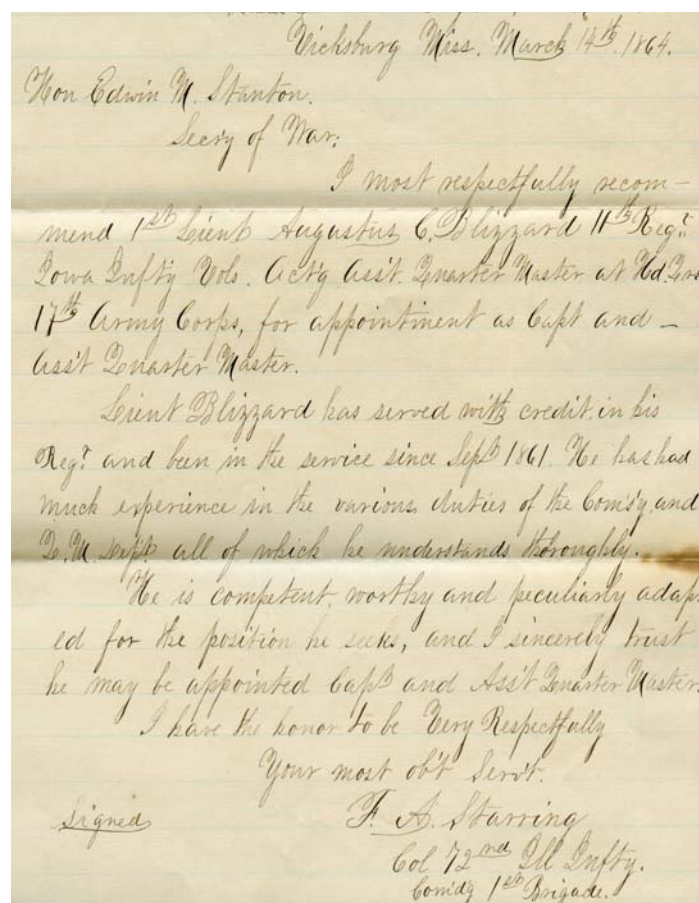 Vicksburg Miss. March 14th. 1864.
Hon Edwin M. Stanton.
Sec'y of War;
I most respectfully recom-
mend 1st Lieut Augustus C. Blizzard 11th Regt.
Iowa Infty Vols. Act'g Ass't. Quarter Master at Hd. Qrs
17th Army Corps, for appointment as Capt and -
Ass't Quarter Master.
Lieut Blizzard has served with credit in his
Regt and been in the service since Sept 1861. He has had
much experience in the various duties of the Com'sy. and
Q.M. Dept. all of which he understands thoroughly.
He is competent, worthy and peculiarly adapt
ed for the position he seeks, and I sincerely trust
he may be appointed Capt and Ass't Quarter Master.
I have the honor to be Very Respectfully
Your most ob't Serv't.
Signed F. A. Starring
Col 72nd Ill Infty.
Com'dg 1st Brigade.